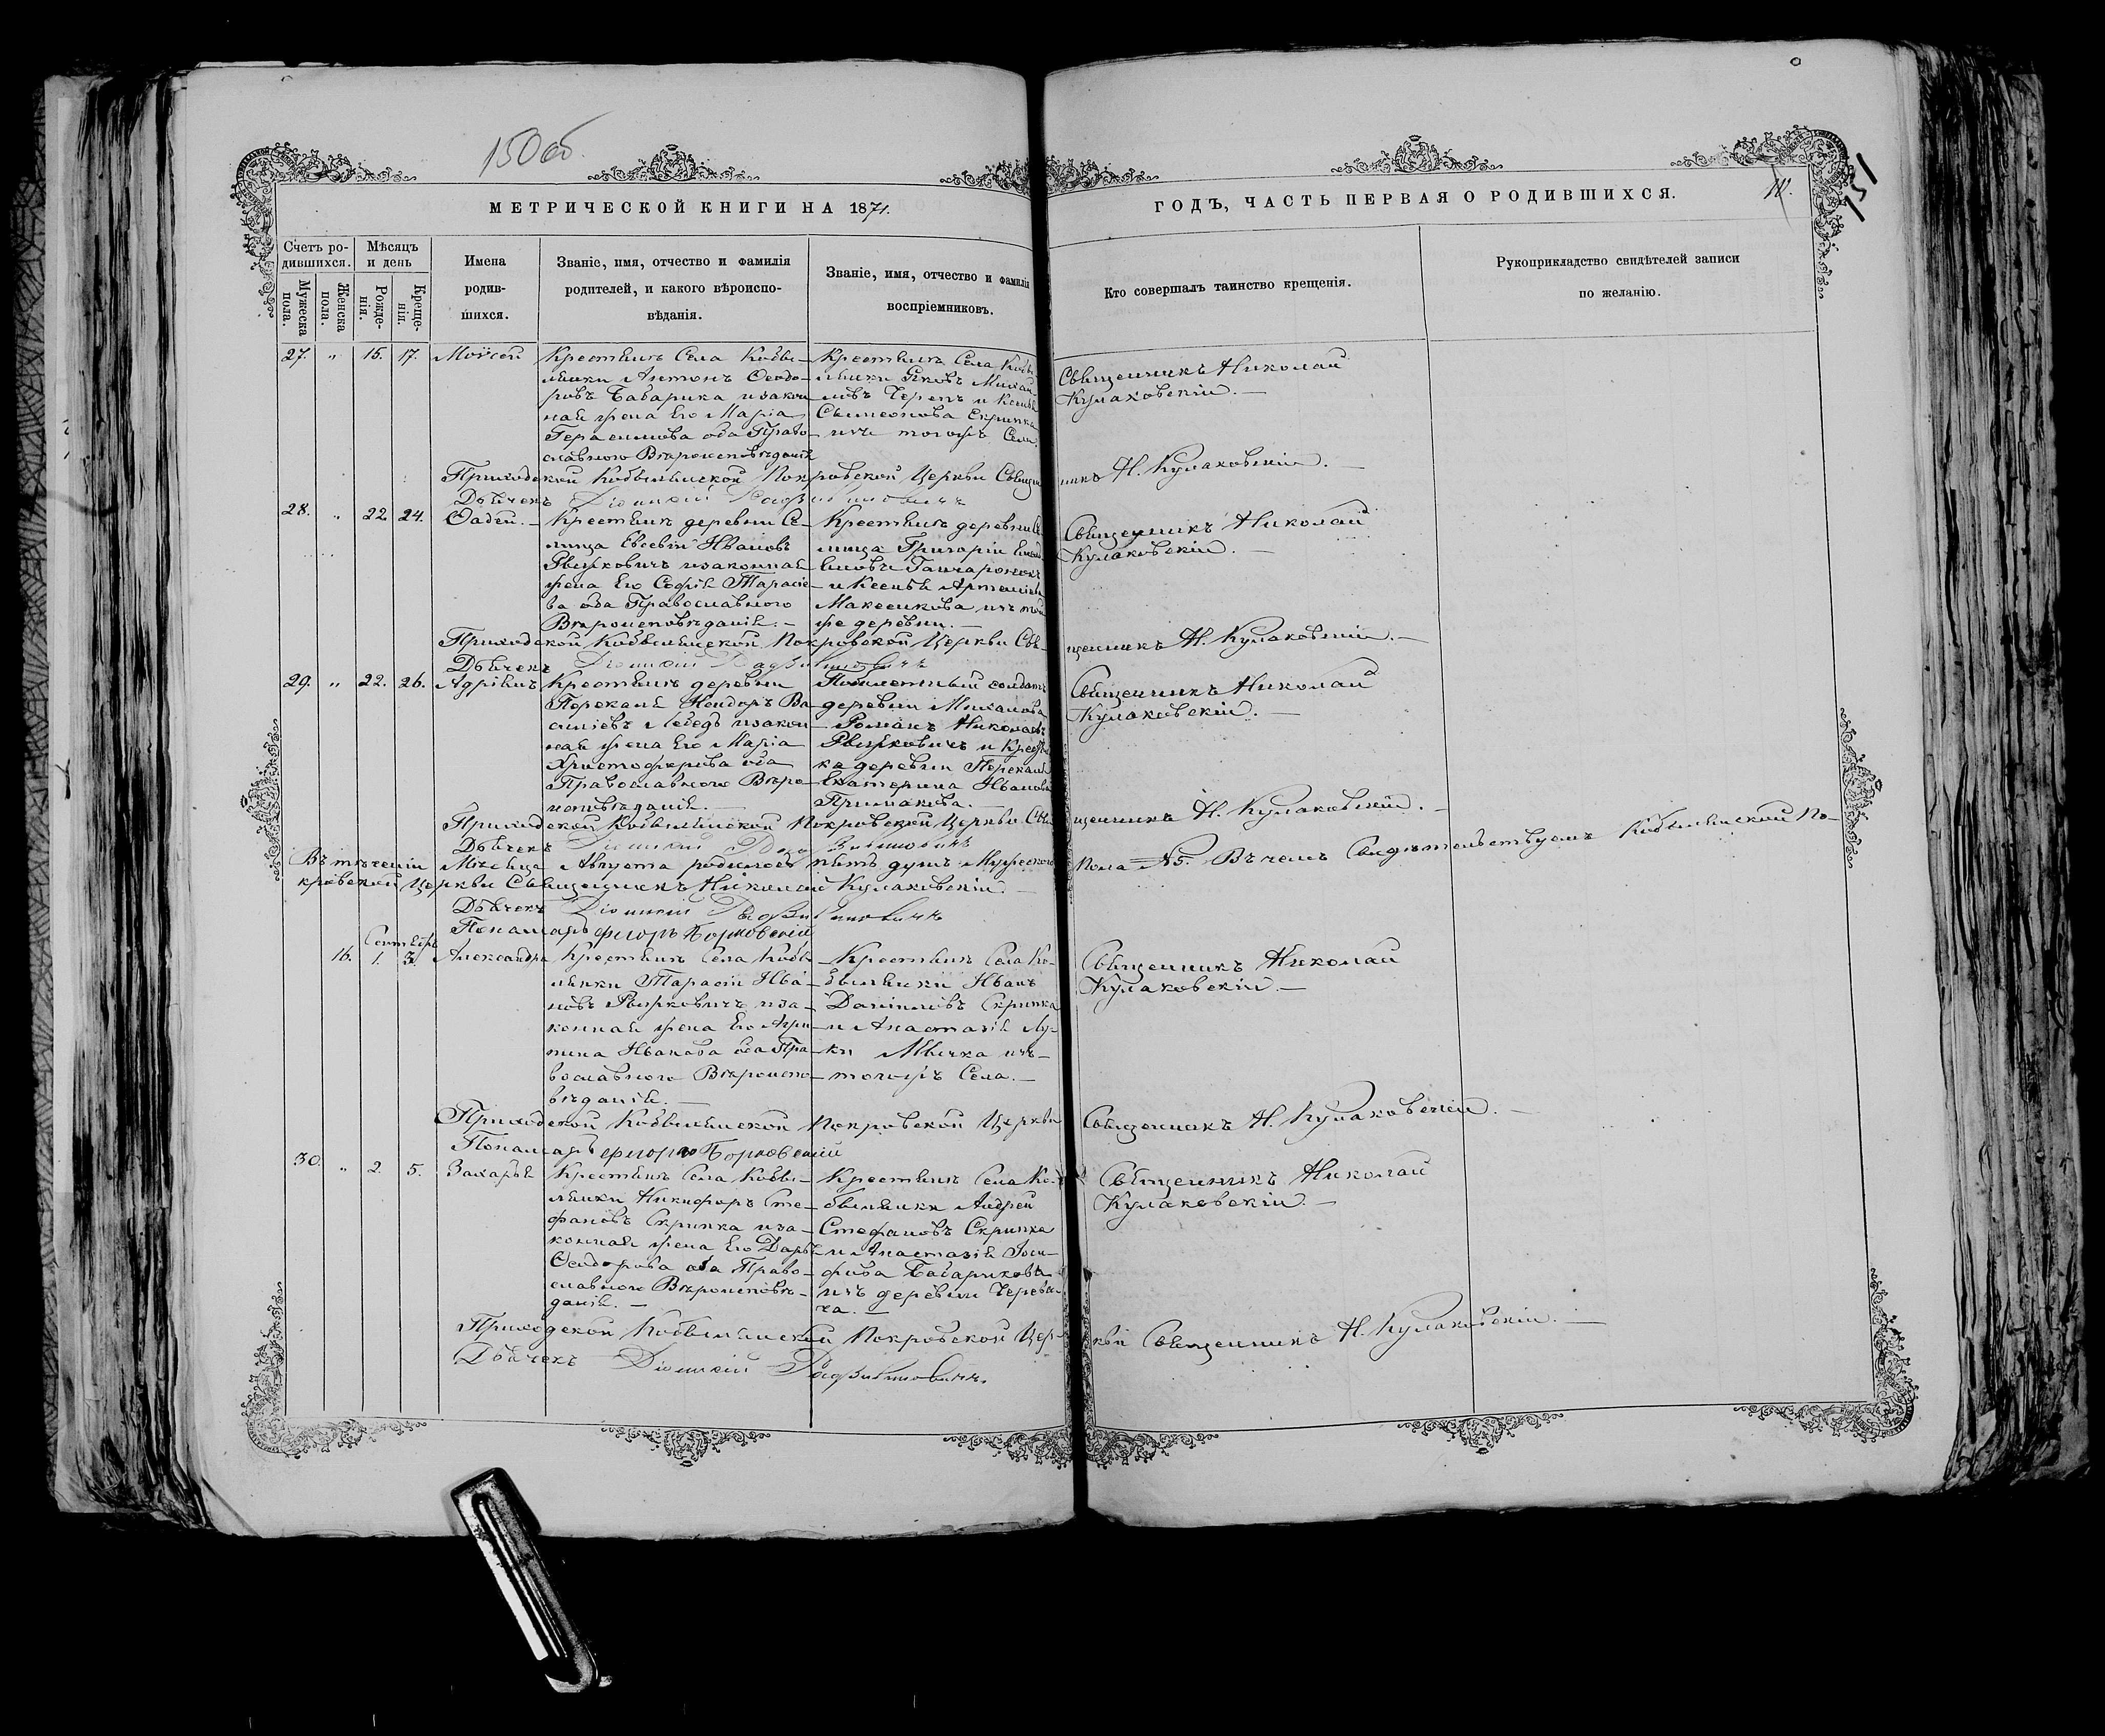 150 об.
151
МЕТРИЧЕСКОЙ КНИГИ НА 1871.
ГОДЪ, ЧАСТЬ ПЕРВАЯ О РОДИВШИХСЯ.
Счетъ ро-
дившихся.
Мѣсяцъ
и день
Мужеска
пола.
Женска
пола.
Рожде-
нія.
Креще-
нія.
Имена
родив-
шихся.
Званіе, имя, отчество и фамилія
родителей, и какого вѣроиспо-
вѣданія.
Званіе, имя, отчество и фамилія
воспріемниковъ.
Кто совершалъ таинство крещенія.
Рукоприкладство свидѣтелей записи
по желанію.
27. " 16. 17. Моѵсей
Крестьянъ Села Кобы-
ляки Антонъ Ѳеодо-
ровъ Бабарика изакон-
ная жена Его Марія
Герасимова оба Право-
славного Вѣроисповѣданія
Крестьянъ Села Кобы-
ляки Яковъ Михай
ловъ Черепъ и Ксенія
Симеонова Скрипка
изъ тогожъ Села.
Священникъ Николай
Кулаковскій.
Приходской Кобылянской Покровской Церкви Священникъ Н. Кулаковскій.
Дьячекъ Діонисій
28. " 22. 24. Ѳадей.
Крестьянъ деревни Се-
лища Евсевій Ивановъ
Рыжковичъ изаконная
жена Его Софія Тарасіе-
ва оба Православного
Вѣроисповѣданія.
Крестьянъ деревни Се
лища Григорій
Гончаронокъ
и Ксенія Артеміева
Максикова изъ той
же деревни.
Священникъ Николай
Кулаковскій.
Приходской Кобылянской Покровской Церкви Священникъ Н. Кулаковскій.
Дьячекъ Діонисій
29. " 22. 26. Адріянъ
Крестьянъ деревни
Перекаля Исидоръ Ва-
силіевъ Лебедь изакон-
ная жена Его Марія
Христофорова оба
Православного Вѣро-
исповѣданія.
солдатъ
деревни
Романъ Николаевъ
Рыжковичъ и Кресть
ка деревни Перекаля
Екатерина Иванова
Примакова.
Священникъ Николай
Кулаковскій.
Приходской Кобылянской Покровской Церкви Священникъ Н. Кулаковскій.
Дьячекъ Діонисій
Въ теченіи Мѣсяца Августа родилось пять душъ Мужеского Пола №5. Въ чемъ Свидѣтельствуемъ Кобылянской По-
кровской Церкви Священникъ Николай Кулаковскій.
Дьячекъ Діонисій
Понамарь Борковскій
Сентябрь
16. 1. 3. Александра
Крестьянъ Села Кобы
ляки Тарасій Ива-
новъ Рыжковичъ иза-
конная жена Его Агри-
пина Иванова оба Пра-
вославного Вѣроиспо-
вѣданія.
Крестьянъ Села Ко-
быляки Иванъ
Даніиловъ Скрипка
и Анастазія Лу-
ки Мычка изъ
тогожъ Села.
Священникъ Николай
Кулаковскій.
Приходской Кобылянской Покровской Церкви Священникъ Н. Кулаковскій.
Понамарь Борковскій
30. " 2. 5. Захарій
Крестьянъ Села Кобы-
ляки Никифоръ Сте-
фановъ Скрипка иза-
конная жена Его Дарья
Ѳеодорова оба Право-
славного Вѣроисповѣ-
данія.
Крестьянъ Села Ко-
быляки Андрей
Стефановъ Скрипка
и Анастазія Іоси-
фова Бабарикова
изъ деревни Черева-
ча.
Священникъ Николай
Кулаковскій.
Приходской Кобылянской Покровской Церкви Священникъ Н. Кулаковскій.
Дьячекъ Діонисій